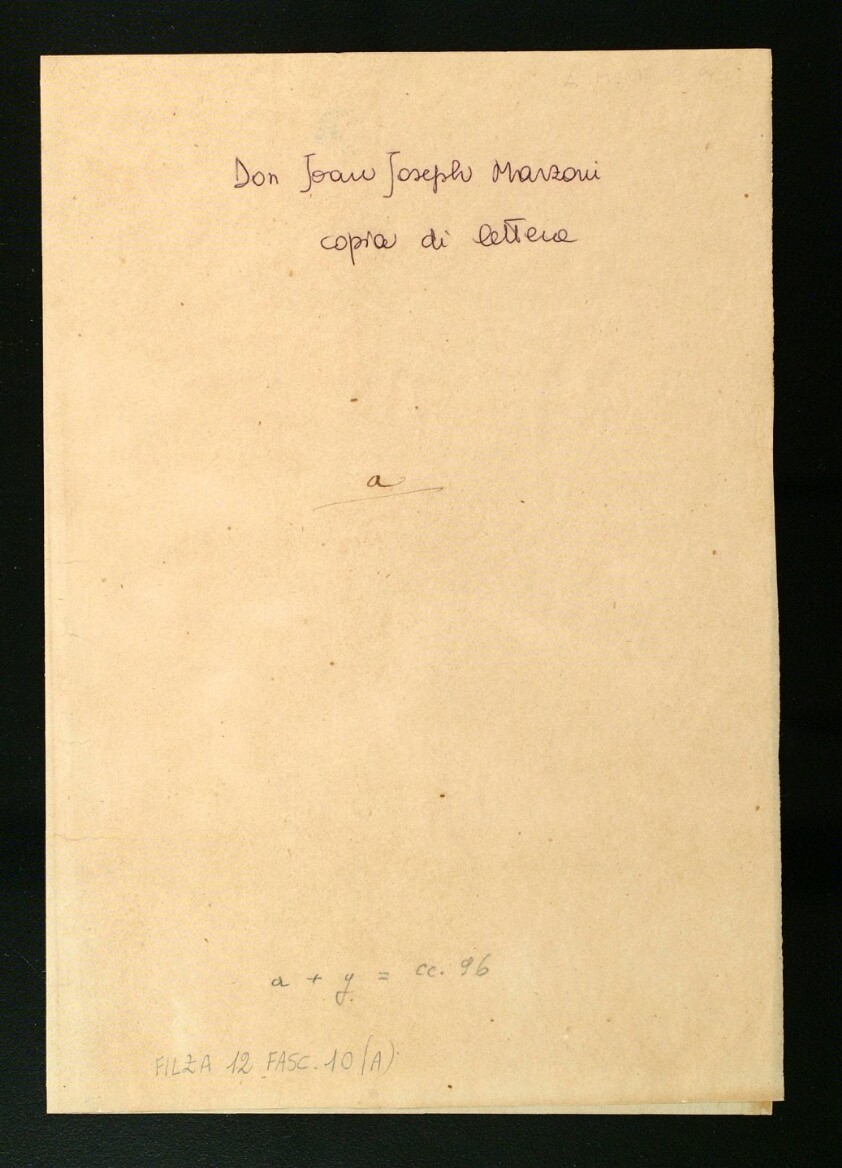 Don Joan Joseph Marzoni
copia di lettere
a
a + y = cc. 96
FILZA 12 FASC. 10 (A)